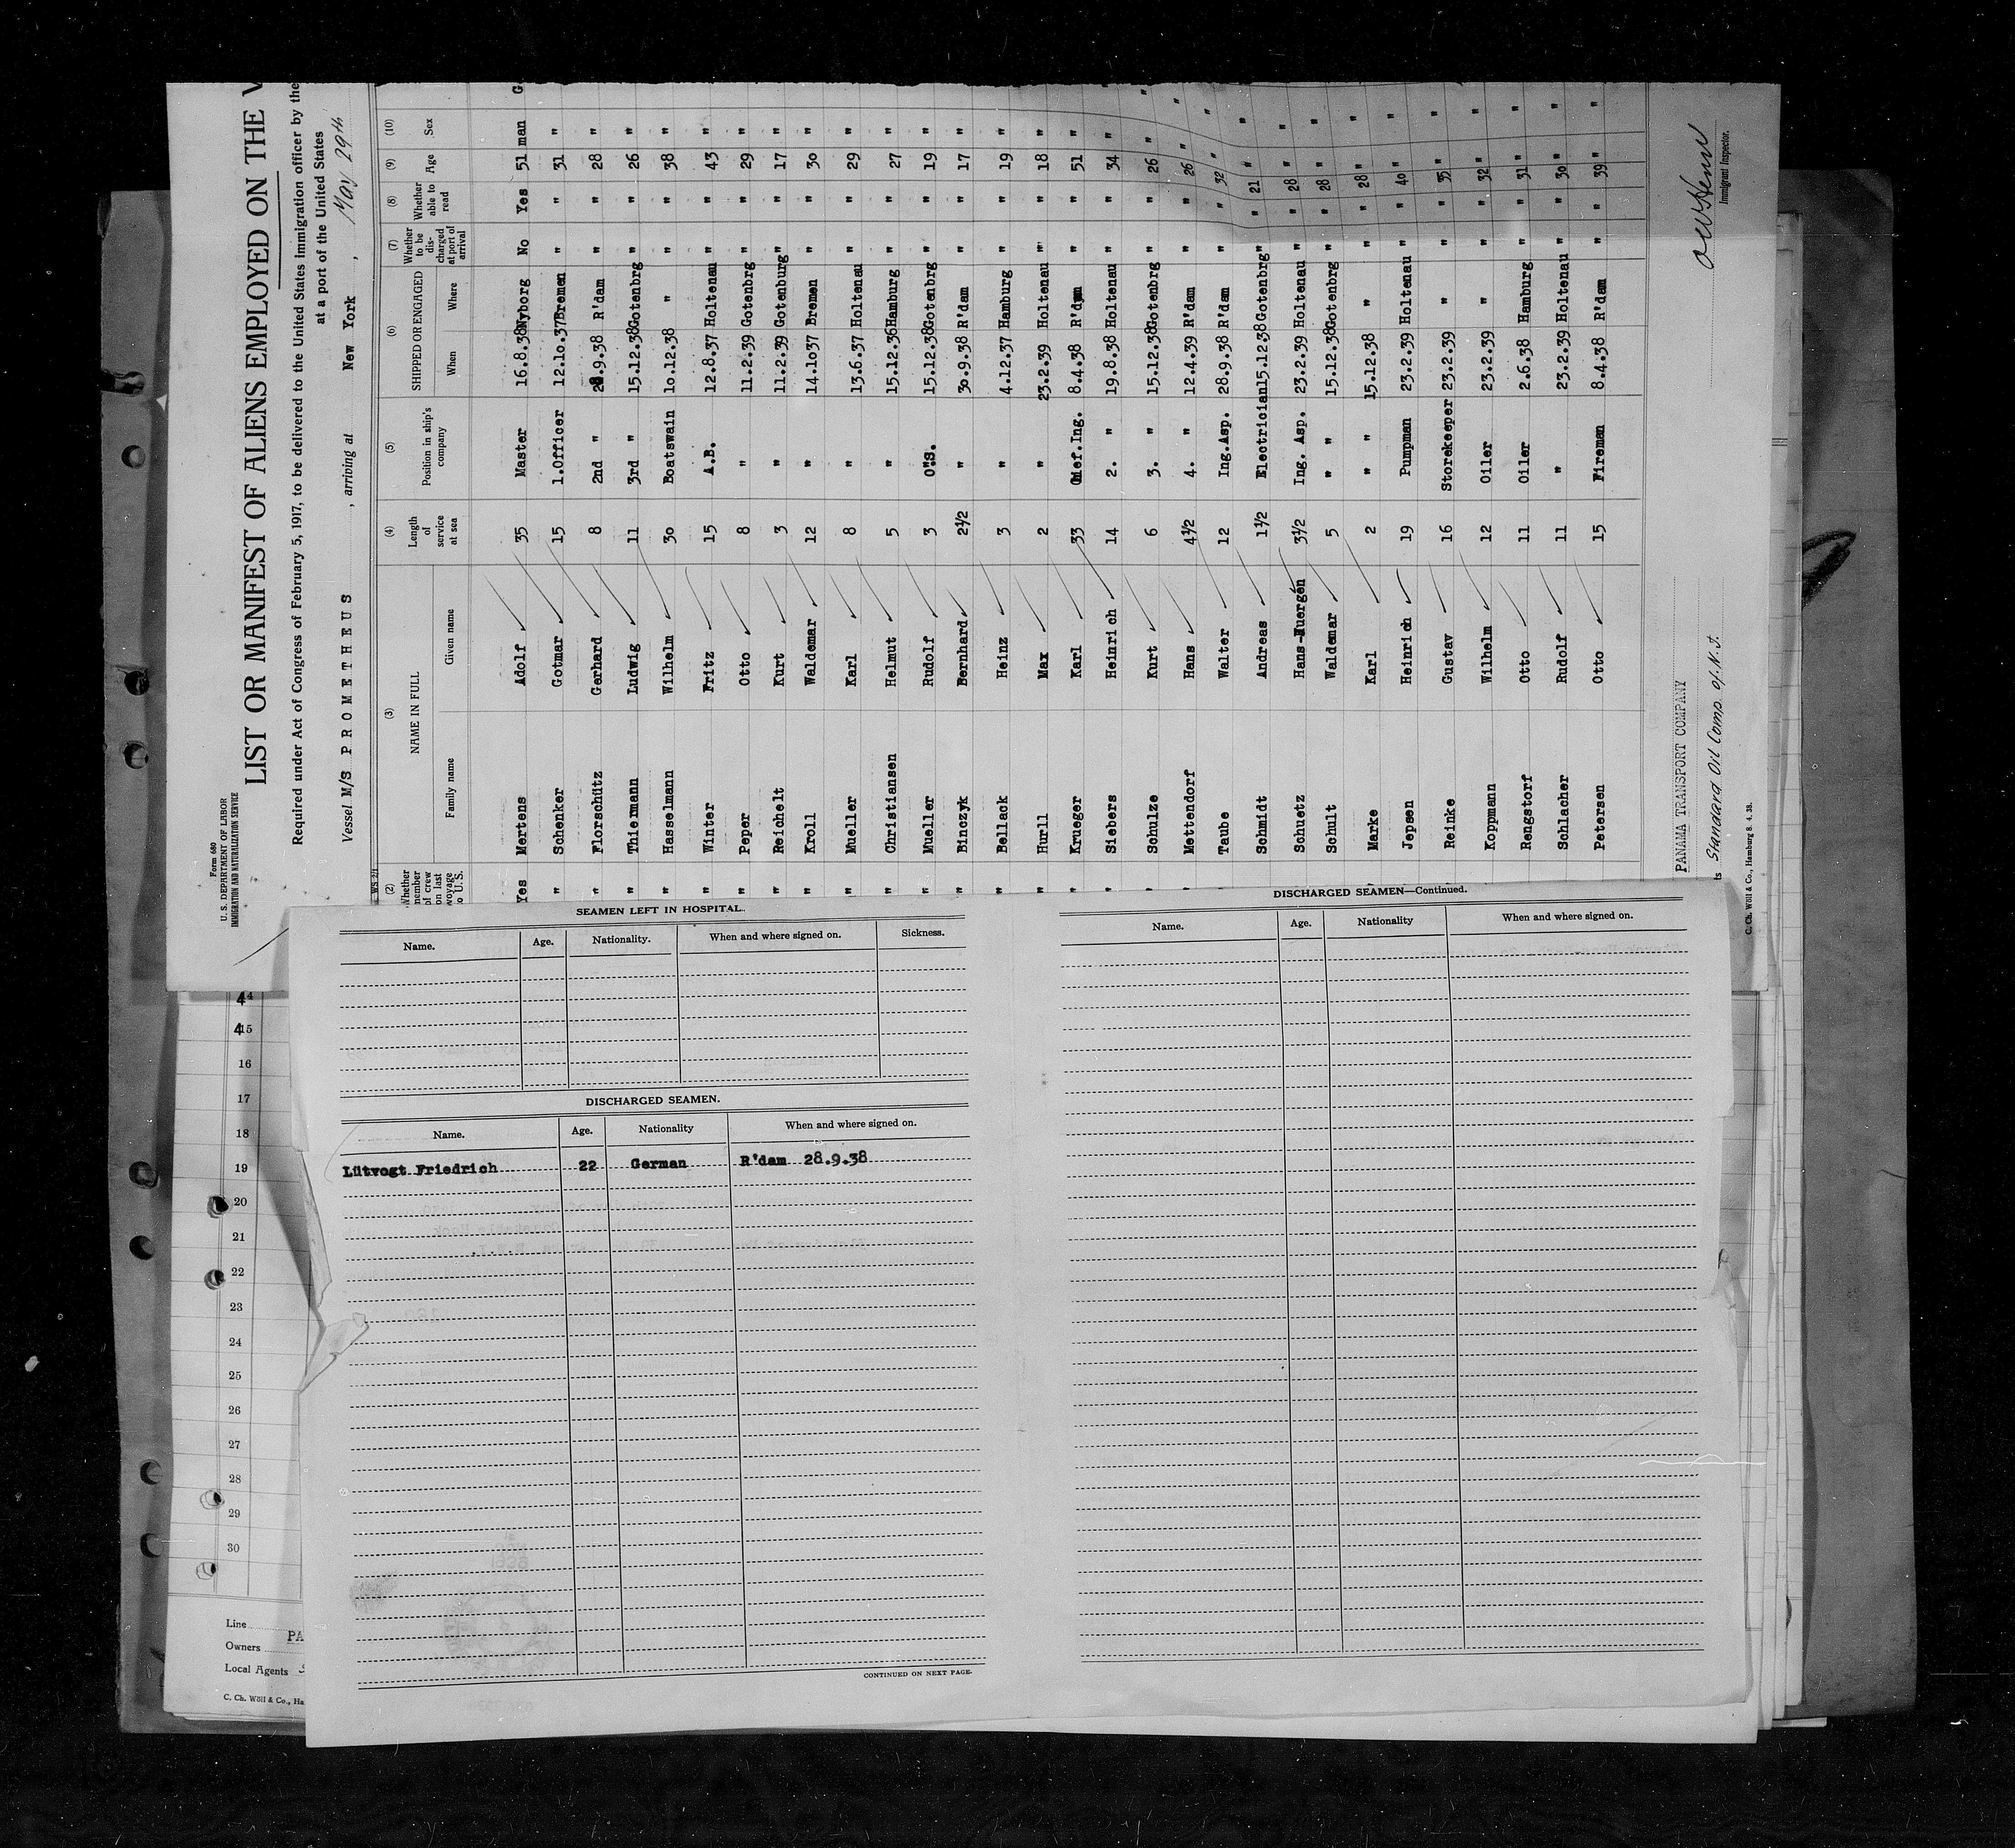 Form 680
U. S. DEPARTMENT OF LABOR
IMMIGRATION AND NATURALIZATION SERVICE
LIST OR MANIFEST OF ALIENS EMPLOYED ON THE
Required under Act of Congress of February 5, 1917, to be delivered to the United States Immigration officer by the
at a port of the United States
Vessel M/S PROMETHEUS , arriving at New York , May 29th
(2) (3) (4) (5) (6) (7) (8) (9) (10)
Whether member of crew on last voyage to U. S. NAME IN FULL Family name Given name Length of service at sea Position in ship's company SHIPPED OR ENGAGED When Where Whether to be discharged at port of arrival Whether able to read Age Sex
Yes Mertens Adolf 35 Master 16.8.38 Nyborg No Yes 51 man G
" Schenker Gotmar 15 1.Officer 12.10.37 Bremen " " 31 "
" Florschütz Gerhard 8 2nd " 28.9.38 R'dam " " 28 "
" Thiemann Ludwig 11 3rd " 15.12.38 Gotenbrg " " 26 "
" Hasselmann Wilhelm 30 Boatswain 10.12.38 " " " 38 "
" Winter Fritz 15 A.B. 12.8.37 Holtenau " " 43 "
" Peper Otto 8 " 11.2.39 Gotenbrg " " 29 "
" Reichelt Kurt 3 " 11.2.39 Gotenburg " " 17 "
" Kroll Waldemar 12 " 14.1037 Bremen " " 30 "
" Mueller Karl 8 " 13.6.37 Holtenau " " 29 "
" Christiansen Helmut 5 " 15.12.36 Hamburg " " 27 "
" Mueller Rudolf 3 O.S. 15.12.38 Gotenbrg " " 19 "
" Binczyk Bernhard 2½ " 30.9.38 R'dam " " 17 "
" Bellack Heinz 3 " 4.12.37 Hamburg " " 19 "
" Hurll Max 2 " 23.2.39 Holtenau " " 18 "
" Krueger Karl 33 Chief.Ing. 8.4.38 R'dam " " 51 "
" Siebers Heinrich 14 2. " 19.8.38 Holtenau " " 34 "
" Schulze Kurt 6 3. " 15.12.38 Gotenbrg " " 26 " "
" Mettendorf Hans 4½ 4. " 12.4.39 R'dam " " 26 " "
Taube Walter 12 Ing.Asp. 28.9.38 R'dam " " 32 " "
Schmidt Andreas 1½ Electrician 15.12.38 Gotenbrg " " 21 " "
Schuetz Hans-Juergen 3½ Ing. Asp. 23.2.39 Holtenau " " 28 " "
Schult Waldemar 5 " " 15.12.38 Gotenbrg " " 28 " "
Marke Karl 2 " " 15.12.38 " " " 28 " "
Jepsen Heinrich 19 Pumpman 23.2.39 Holtenau " " 40 " "
Reinke Gustav 16 Storekeeper 23.2.39 " " " 35 " "
Koppmann Wilhelm 12 Oiler 23.2.39 " " " 32 " "
Rengstorf Otto 11 Oiler 2.6.38 Hamburg " " 31 " "
Schlacher Rudolf 11 " 23.2.39 Holtenau " " 30 " "
Petersen Otto 15 Fireman 8.4.38 R'dam " " 39 " "
PANAMA TRANSPORT COMPANY
ts Standard Oil Comp. of N. J.
Immigrant Inspector.
C. Ch. Wöll & Co., Hamburg 8. 4. 38.
SEAMEN LEFT IN HOSPITAL.
Name. Age. Nationality. When and where signed on. Sickness.
DISCHARGED SEAMEN.
Name. Age. Nationality When and where signed on.
Lütvogt Friedrich 22 German R'dam 28.9.38
CONTINUED ON NEXT PAGE.
DISCHARGED SEAMEN—Continued.
Name. Age. Nationality When and where signed on.
44
415
16
17
18
19
20
21
22
23
24
25
26
27
28
29
30
Line
Owners PA
Local Agents
C. Ch. Wöll & Co., Ha